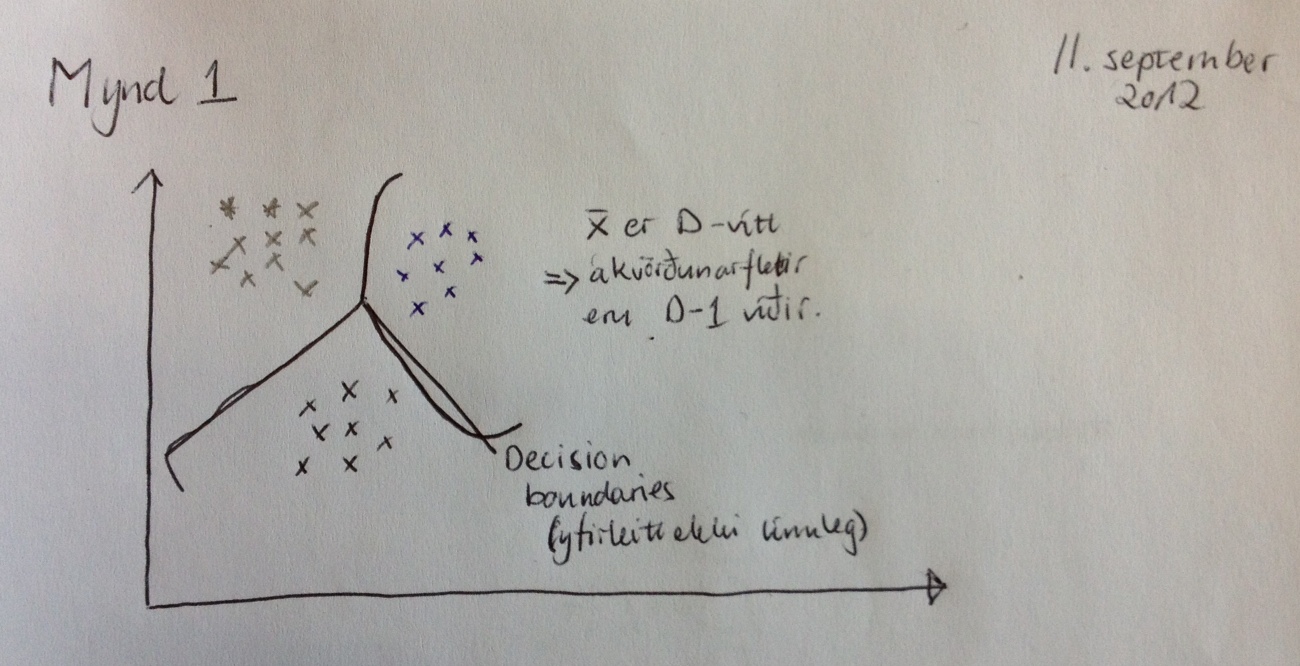 Mynd 1
11. september
2012
x̄ er D-vítt
=> ákvörðunarfletir
eru D-1 víðir.
Decision
boundaries
(yfirleitt ekki línuleg)